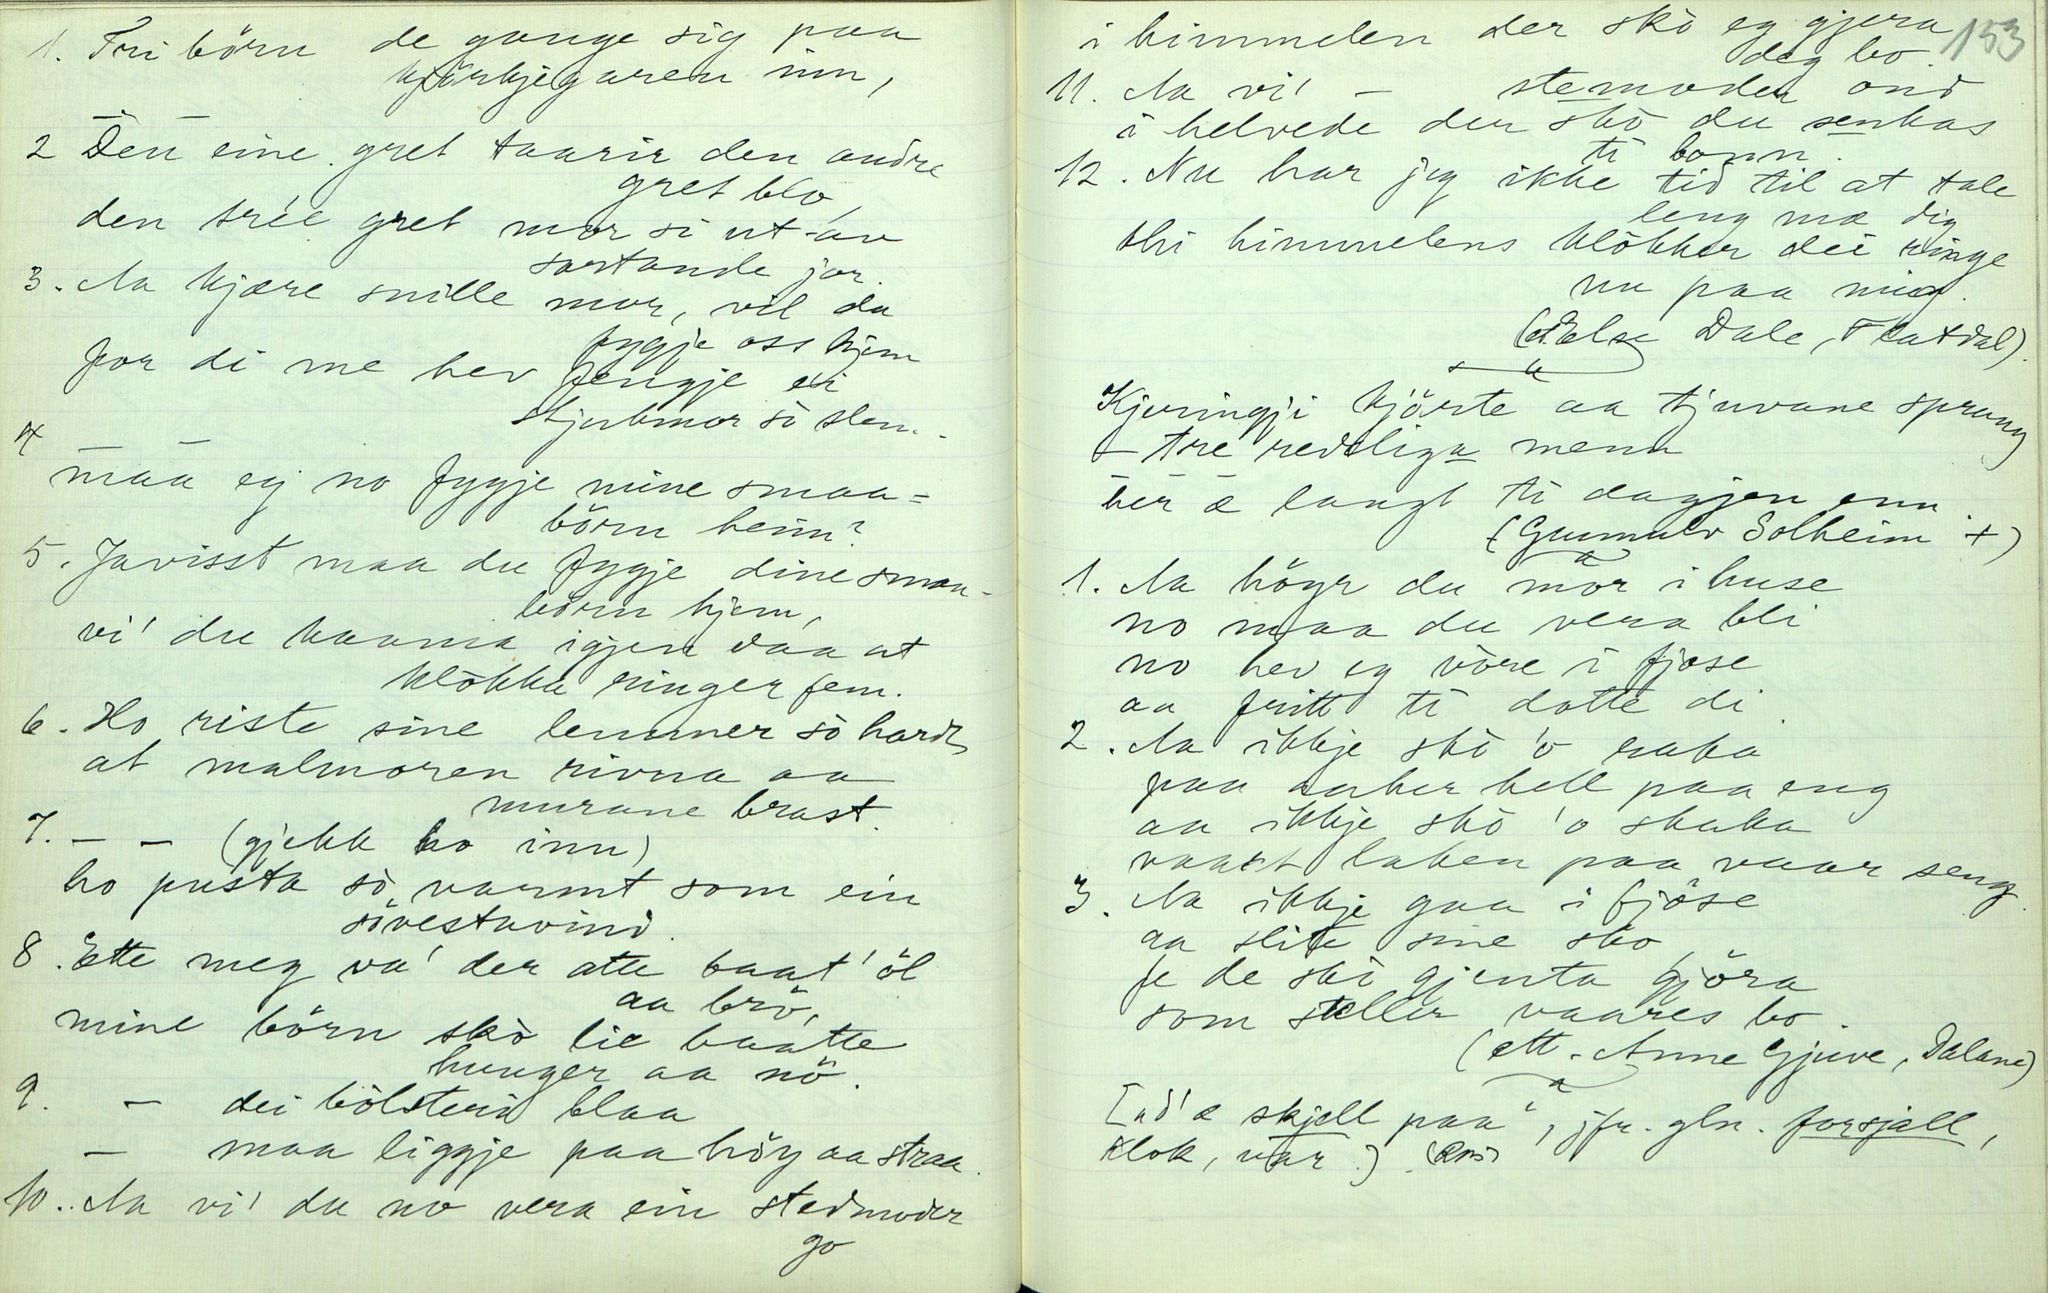 1. Tri börn de gange sig paa
kjörkjegaren inn,
— —
2 Den eine gret taarir den andre
gret blo,
den trée gret mor si ut-av
svartande jor.
3. Aa kjære snille mor, vil du
fygje oss hjem
for di me hev fengje ei
stjubmor so slem.
4
— —
maa eg no fygje mine smaa-
börn heim?
5. Javisst maa du fygje dine smaa-
börn hjem,
vi' du kaama igjen daa at
klòkka ringer fem.
6. Ho riste sine lemmer sò hardt,
at malmoren rivna aa
murane brast.
7. — — (gjekk ho inn)
ho pusta sò varmt som ein
sövestavind.
8. Ette meg va' der atte baat' öl
aa brö,
mine börn skò lie baatte
hunger aa nö.
9. — dei bölsterir blaa
— maa liggje paa höy aa straa.
10. Aa vi' du no vera ein stedmoder
go
153
i himmelen der skò eg gjera
deg bo.
11. Aa vi' — stemoder ond
i helvede der skò du senkas
ti bonn.
12. Nu har jeg ikke tid til at tale
leng mæ dig
thi himmelens klòkker dei ringe
nu paa mig.
(Else Dale, Flatdal).
Kjeringji kjörte aa tjuvane sprang
— tre redsliga menn
her æ langt ti dagjen enn.
(Gunnulv Solheim +)
1. Aa höyr du mor i huse
no maa du vera bli
no hev eg vòre i fjose
aa fritt ti dotte di.
2. Aa ikkje skò 'o raka
paa aaker hell paa eng
aa ikkje skò 'o skaka
vaart laken paa vaar seng.
3. Aa ikkje gaa i fjöse
aa slite sine sko,
fe de skò gjenta gjöra
som steller vaares bo.
(ett. Anne Gjuve, Dalane)
[ad' æ skjell paa", jfr. gln. forsjall,
klok, var.) (Ross)